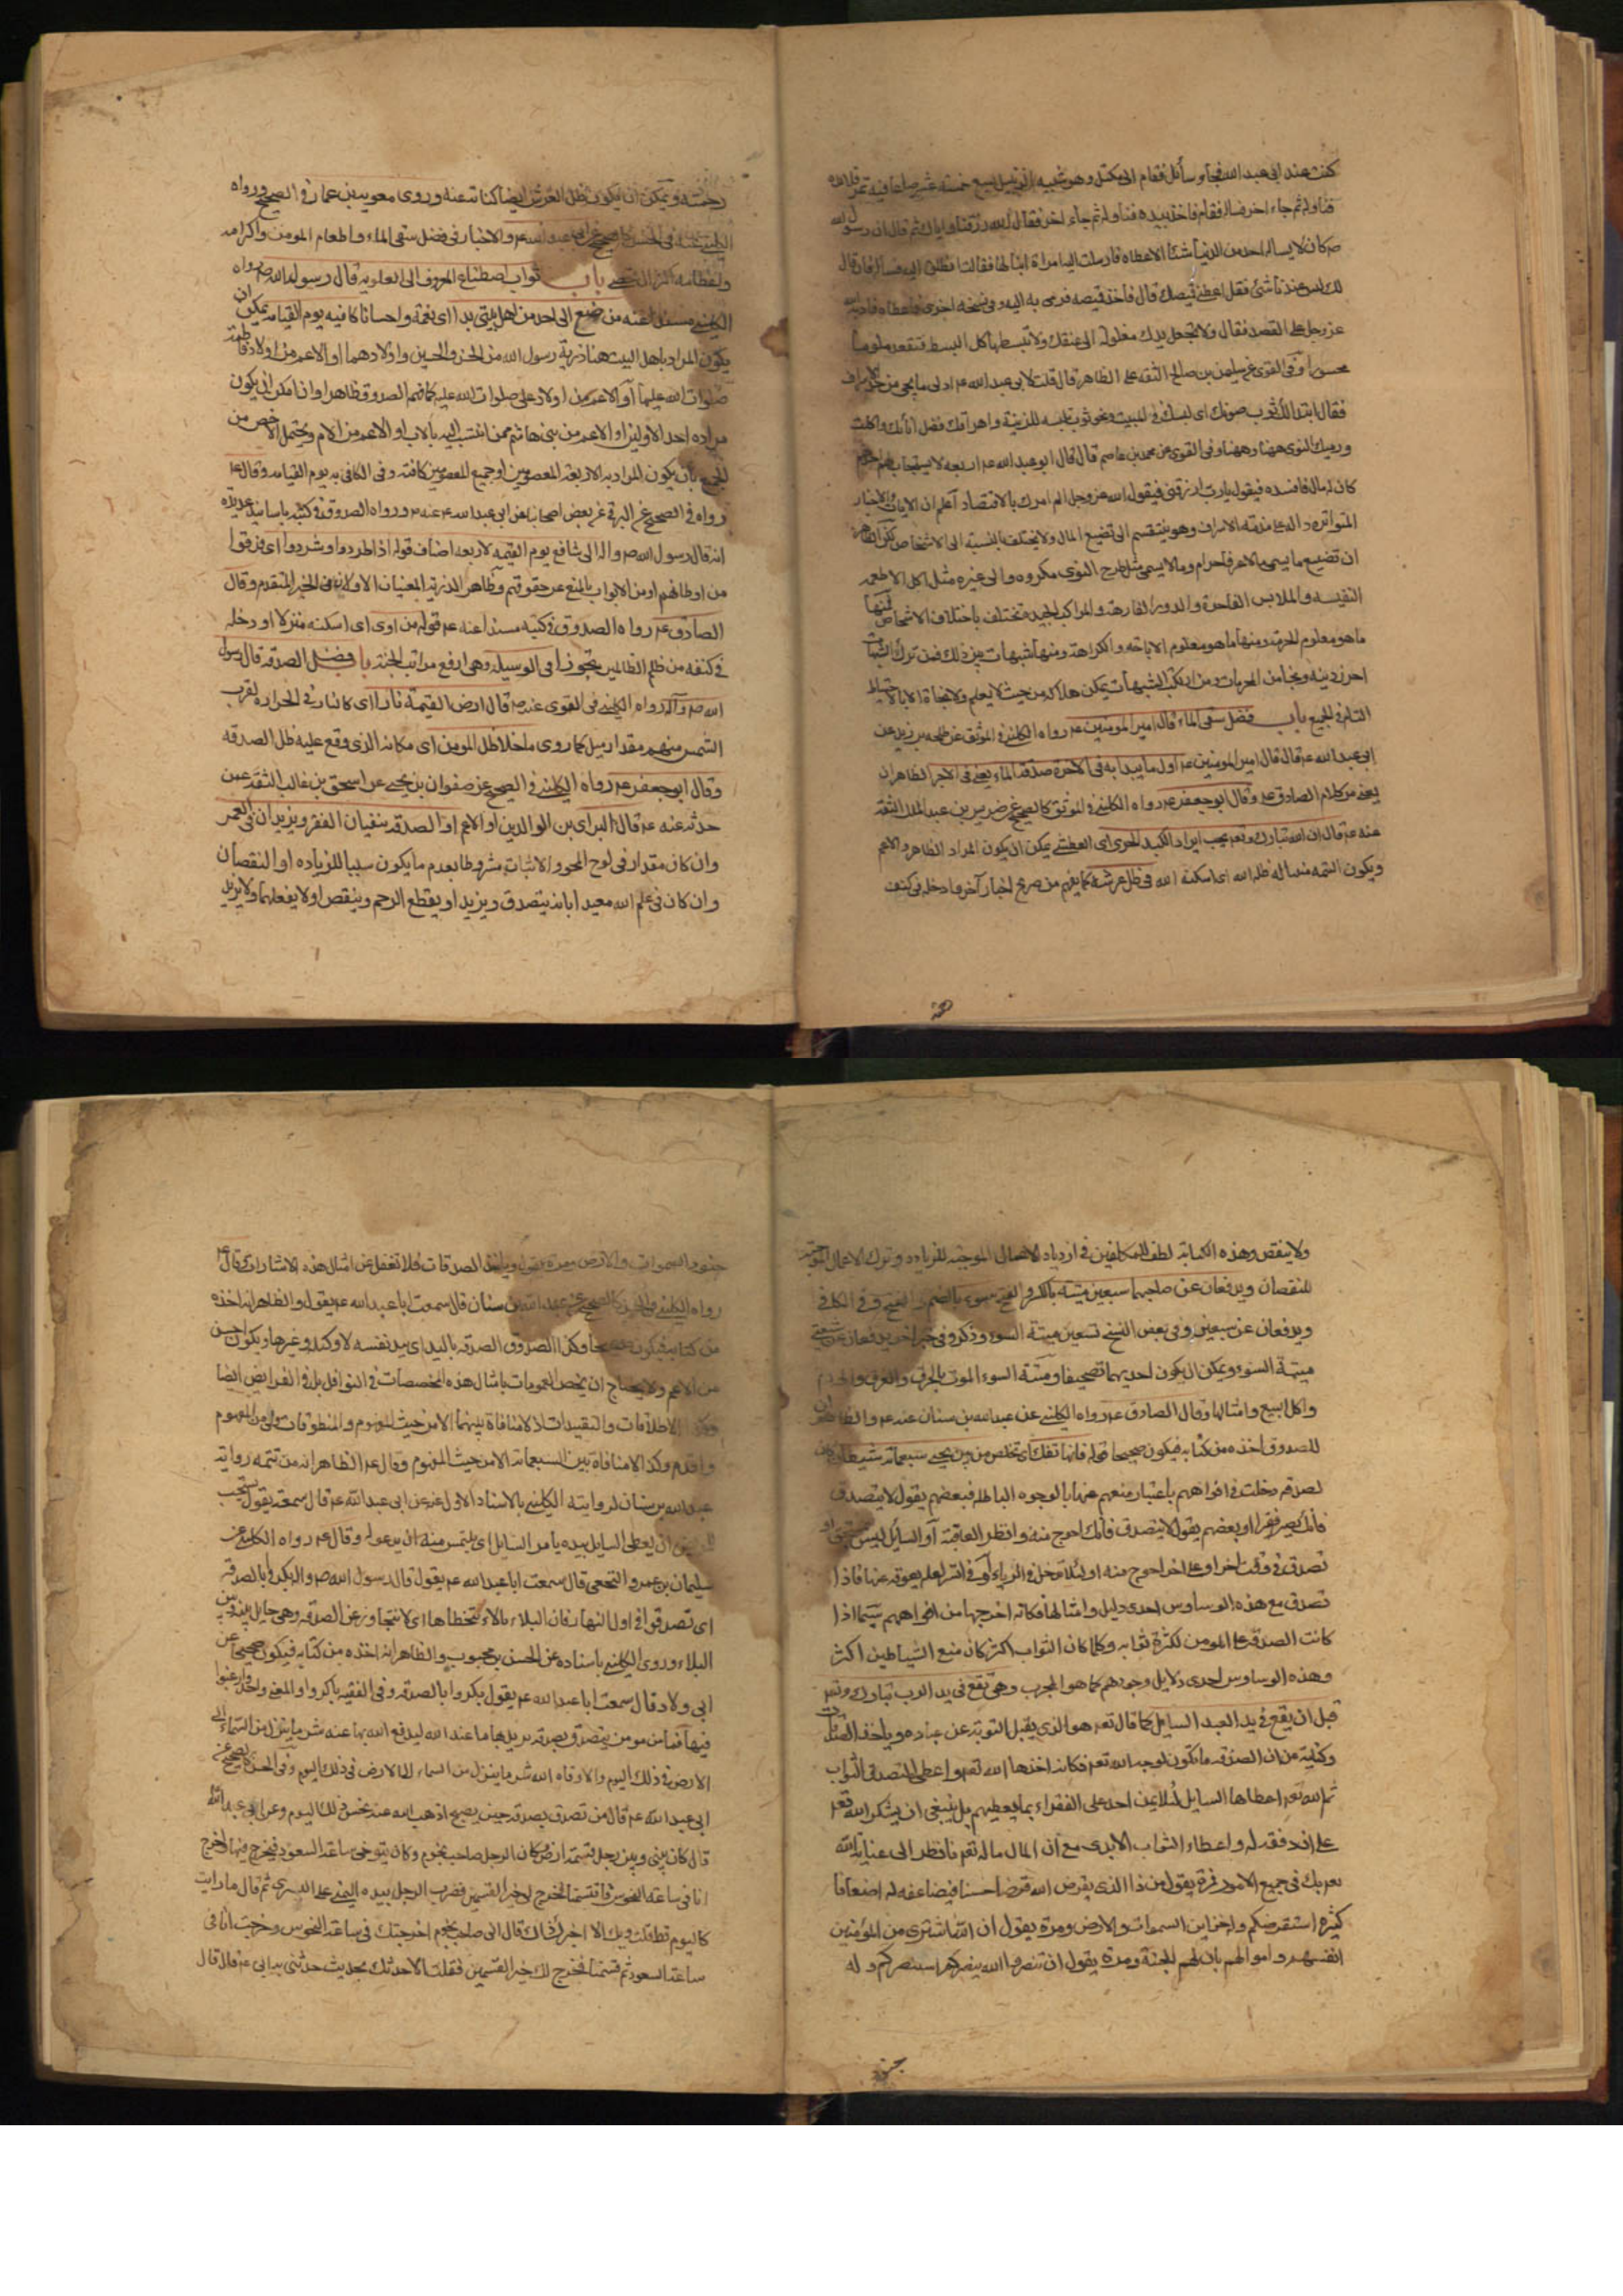 كنت عند ابى عبد الله فجاء سائل فقام الى مكتل وهو شبيه الزنبيل يسع خمسة عشر صاعا فيه تمر فملأ يده
فناوله ثم جاء اخر فساله فقام فاخذ بيده فناوله ثم جاء اخر فقال الله رزقنا واياك ثم قال ان رسول الله
ص كان لا يساله احد من الدنيا شيئا الا عطاه فارسلت اليه امراة ابنا لها فقالت انطلق اليه فساله فان قال
لك ليس عندنا شئ فقل اعطنى قميصك قال فاخذ قميصه فرمى به اليه وفى نسخه اخرى فاعطاه فادبه الله
عز وجل على القصد فقال ولا تجعل يدك مغلولة الى عنقك ولا تبسطها كل البسط فتقعد ملوما
محسورا وفى القوى عن سليمن بن صالح الثقه على الظاهر قال قلت لابى عبد الله ع ادنى ما يجئ من حد الاسراف
فقال ابتذالك ثوب صونك اى لبسك فى البيت ونحو ثوب تلبسه للزينة واهراقك فضل انائك واكلك
ورميك النوى ههنا وههنا وفى القوى عن محمد بن عاصم قال قال ابو عبد الله ع اربعه لا يستجاب لهم احدهم
كان له مال فافسده فيقول يا رب ارزقنى فيقول الله عز وجل الم امرك بالاقتصاد اعلم ان الايات والاخبار
المتواتره داله على مذمته الاسراف وهو ينقسم الى تضييع المال ولا يختلف بالنسبة الى الاشخاص لكن الظاهر
ان تضييع ما يسمى بالاسراف حرام وما لا يسمى مثل طرح النوى مكروه والى غيره مثل اكل الاطعمه
النفيسه والملابس الفاخرة والدور الفارهة والمراكب الجيده تختلف باختلاف الاشخاص فمنها
ما هو معلوم الحرمة ومنها ما هو معلوم الاباحه والكراهة ومنها شبهات بين ذلك فمن ترك الشبهات
احرز دينه ونجا من المحرمات ومن ارتكب الشبهات يمكن هلاكه من حيث لا يعلم ولا نجاة الا بالاحتياط
التام فى الجميع باب فضل سقى الماء قال امير المومنين ع رواه الكلينى فى الموثق عن طلحه بن زيد عن
ابى عبد الله ع قال قال امير المومنين ع اول ما يبدا به فى الاخرة صدقة الماء يعنى فى الاجر الظاهر ان
يعنى من كلام الصادق ع وقال ابو جعفر ع رواه الكلينى فى الموثق كالصحيح عن ضريس بن عبد الملك الثقة
عنه ع قال ان الله تبارك وتعه يحب ايراد الكبد الحرى اى العطشى يمكن ان يكون المراد الظاهر او الاعم
ويكون التتمه مثاله ظله الله اى اسكنه الله فى ظل عرشه كما يفهم من صريح اخبار آخر او ادخله فى كنف
رحمته ويمكن ان يكون ظل العرش ايضا كناية عنه وروى معوية بن عمار فى الصحيح ورواه
الكلينى عنه فى الحسن كالصحيح عن ابى عبد الله ع والاخبار فى فضل سقى الماء واطعام المومن واكرامه
ولطفا به اكثر ان تحصى باب ثواب اصطناع المعروف الى العلويه قال رسول الله ص رواه
الكلينى مسندا عنه من صنع الى احد من اهل بيتى يدا اى نعمة واحسانا كافيه يوم القيامه يمكن ان
يكون المراد باهل البيت هنا ذرية رسول الله من الحسن والحسين واولادهما او الاعم من اولاد فاطمة
صلوات الله عليها او الاعم من اولاد على صلوات الله عليه كما فهم الصدوق ظاهرا وان امكن ان يكون
مراده احد الاولين او الاعم من بنى هاشم ممن انتسب اليه بالاب او الاعم من الام ويحتمل الاخص من
الجميع بان يكون المراد به الاربعة المعصومين او جميع المعصومين كافة وفى الكافى به يوم القيامه وقال ع
رواه فى الصحيح عن البرقى عن بعض اصحابنا عن ابى عبد الله ع عنه ص ورواه الصدوق فى كتبه باسانيد عديدة
انه قال رسول الله ص واله انى شافع يوم القيمه لاربعه اصناف قوله اذا طردوا وشردوا اى فرقوا
من اوطانهم او من الابواب بالمنع عن حقوقهم وظاهر الذرية المعنيان الاولان فى الخبر المتقدم وقال
الصادق ع رواه الصدوق فى كتبه مسندا عنه ع قوله من اوى اى اسكنه منزلا او دخله
فى كنفه من ظلم الظالمين يتجوز اى فى الوسيله وهى ارفع مراتب الجنة باب فضل الصدقه قال رسول
الله ص وآله رواه الكلينى فى القوى عنه ص قال ارض القيمة نار اى كالنار فى الحراره لقرب
الشمس منهم مقدار ميل كما روى ما خلا ظل المومن اى مكانه الذى وقع عليه ظل الصدقه
وقال ابو جعفر ع رواه الكلينى فى الصحيح عن صفوان بن يحيى عن اسحق بن غالب الثقة عمن
حدثه عنه ع قال البر اى بر الوالدين او الاعم او الصدقه ينفيان الفقر ويزيدان فى العمر
وان كان مقدار فى لوح المحو والاثبات مشروطا بعدم ما يكون سببا للزياده او النقصان
وان كان فى علم الله معيدا بانه يتصدق ويزيد او يقطع الرحم وينقص او لا يفعلها ولا يزيد
ولا ينقص وهذه الكتابه لطف للمكلفين فى ازدياد الاعمال الموجبه للزياده وترك الاعمال الموجبة
للنقصان ويدفعان عن صاحبهما سبعين ميتة بالكسر والفتح سوء بالضم والفتح وفى الكافى
ويدفعان عن سبعين وفى بعض النسخ تسعين ميتة السوء وذكر وفى خبر اخر يدفعان عن شيعتى
ميتة السوء ويمكن ان يكون احديهما تصحيفا وميتة السوء الموت بالحرق والغرق والهدم
واكل السبع وامثالها وقال الصادق ع رواه الكلينى عن عبد الله بن سنان عنه ع والظاهر ان
الصدوق اخذه من كتابه فيكون صحيحا قوله فانها تفك اى تخلص من بين لحيى سبعمائة شيطان كان
الصدقه دخلت فى افواههم باعتبار منعهم عنها بالوجوه الباطله فبعضهم يقول لا يتصدق
فانك تصير فقيرا او بعضهم يقول لا يتصدق فانك احوج منه وانظر العاقبة او السائل ليس بمستحق او
تصدق فى وقت اخر او على اخر احوج منه او لئلا تدخل فى الرياء او فى السر لعله يعوقه عنها فاذا
تصدق مع هذه الوساوس احدى دليل وامثالها فكانه اخرجها من افواههم سيما اذا
كانت الصدقه على المومن لكثرة ثوابه وكلما كان الثواب اكثر كان منع الشياطين اكثر
وهذه الوساوس احدى دلايل وجودهم كما هو المجرب وهى تقع فى يد الرب تبارك وتعه
قبل ان يقع فى يد العبد السايل كما قال تعه هو الذى يقبل التوبة عن عباده وياخذ الصدقات
وكناية من ان الصدقه ما تكون لوجه الله تعه فكانه اخذها الله تعه واعطى المتصدق الثواب
ثم الله تعه اعطاها السايل لئلا يمن احد على الفقراء بما يعطيهم بل ينبغى ان يشكر الله تعه
على انه وفقه له واعطاء الثواب الابدى مع ان المال ماله تعه فانظر الى عناية الله
بعربك فى جميع الامور فمرة يقول من ذا الذى يقرض الله قرضا حسنا فيضاعفه له اضعافا
كثيرة استقرضكم وله خزاين السموات والارض ومرة يقول ان الله اشترى من المؤمنين
انفسهم واموالهم بان لهم الجنة ومرة يقول ان تنصروا الله ينصركم استنصركم وله
جنود السموات والارض ومرة يقول وياخذ الصدقات فلا تغفل عن امثال هذه الاشارات وقال ع
رواه الكلينى فى الحسن كالصحيح عن عبد الله بن سنان قال سمعت ابا عبد الله ع يقول والظاهر انه اخذه
من كتابه فيكون صحيحا وكذا الصدوق الصدقه باليد اى بيد نفسه لا وكيله وغيرها ويكون احسن
من الاعم ولا يحتاج ان يخص العمومات بامثال هذه المخصصات فى النوافل بل فى الفرايض ايضا
وكذا الاطلاقات والتقييدات اذ لا منافاة بينهما الا من حيث المفهوم والمنطوقات مولى من المفهوم
واقدم وكذا لا منافاة بين السبعمائة الا من حيث المفهوم وقال ع الظاهر انه من تتمه رواية
عبد الله بن سنان لرواية الكلينى بالاسناد الاول عنه عن ابى عبد الله ع قال سمعته يقول يستحب
للمريض ان يعطى السايل بيده يا مر السايل اى يلتمس منه ان يدعو له وقال ع رواه الكلينى عن
سليمان بن عمرو النخعى قال سمعت ابا عبد الله ع يقول قال رسول الله ص واله بكروا بالصدقه
اى تصدقوا فى اول النهار فان البلاء بالاء لا تتخطاها اى لا يتجاوز عن الصدقه وهى حايل بينه وبين
البلاء وروى الكلينى باسناده عن الحسن بن محبوب والظاهر انه اخذه من كتابه فيكون صحيحا عن
ابى ولاد قال سمعت ابا عبد الله ع يقول بكروا بالصدقه وفى الفقيه باكروا والمعنى واحد وارغبوا
فيها فما من مومن يتصدق بصدقه يريد بها ما عند الله ليدفع الله بها عنه شر ما ينزل من السماء الى
الارض فى ذلك اليوم والا وقاه الله شر ما ينزل من السماء الى الارض فى ذلك اليوم وفى الحسن كالصحيح عن
ابى عبد الله ع قال من تصدق بصدقه حين يصبح اذهب الله عنه نحس ذلك اليوم وعن ابى عبد الله
قال كان بينى وبين رجل قسمة ارض وكان الرجل صاحب نجوم وكان يتوخى ساعة السعود فيخرج فيها واخرج
انا فى ساعة النحوس فاقتسمنا فخرج لى خير القسمين فضرب الرجل بيده اليمنى على اليسرى ثم قال ما رايت
كاليوم قط قلت ويك الا اخبرك ذاك قال انى صاحب نجوم اخرجتك فى ساعة النحوس وخرجت انا فى
ساعة السعود ثم قسمنا فخرج لك خير القسمين فقلت الا احدثك بحديث حدثنى به ابى ع قال قال